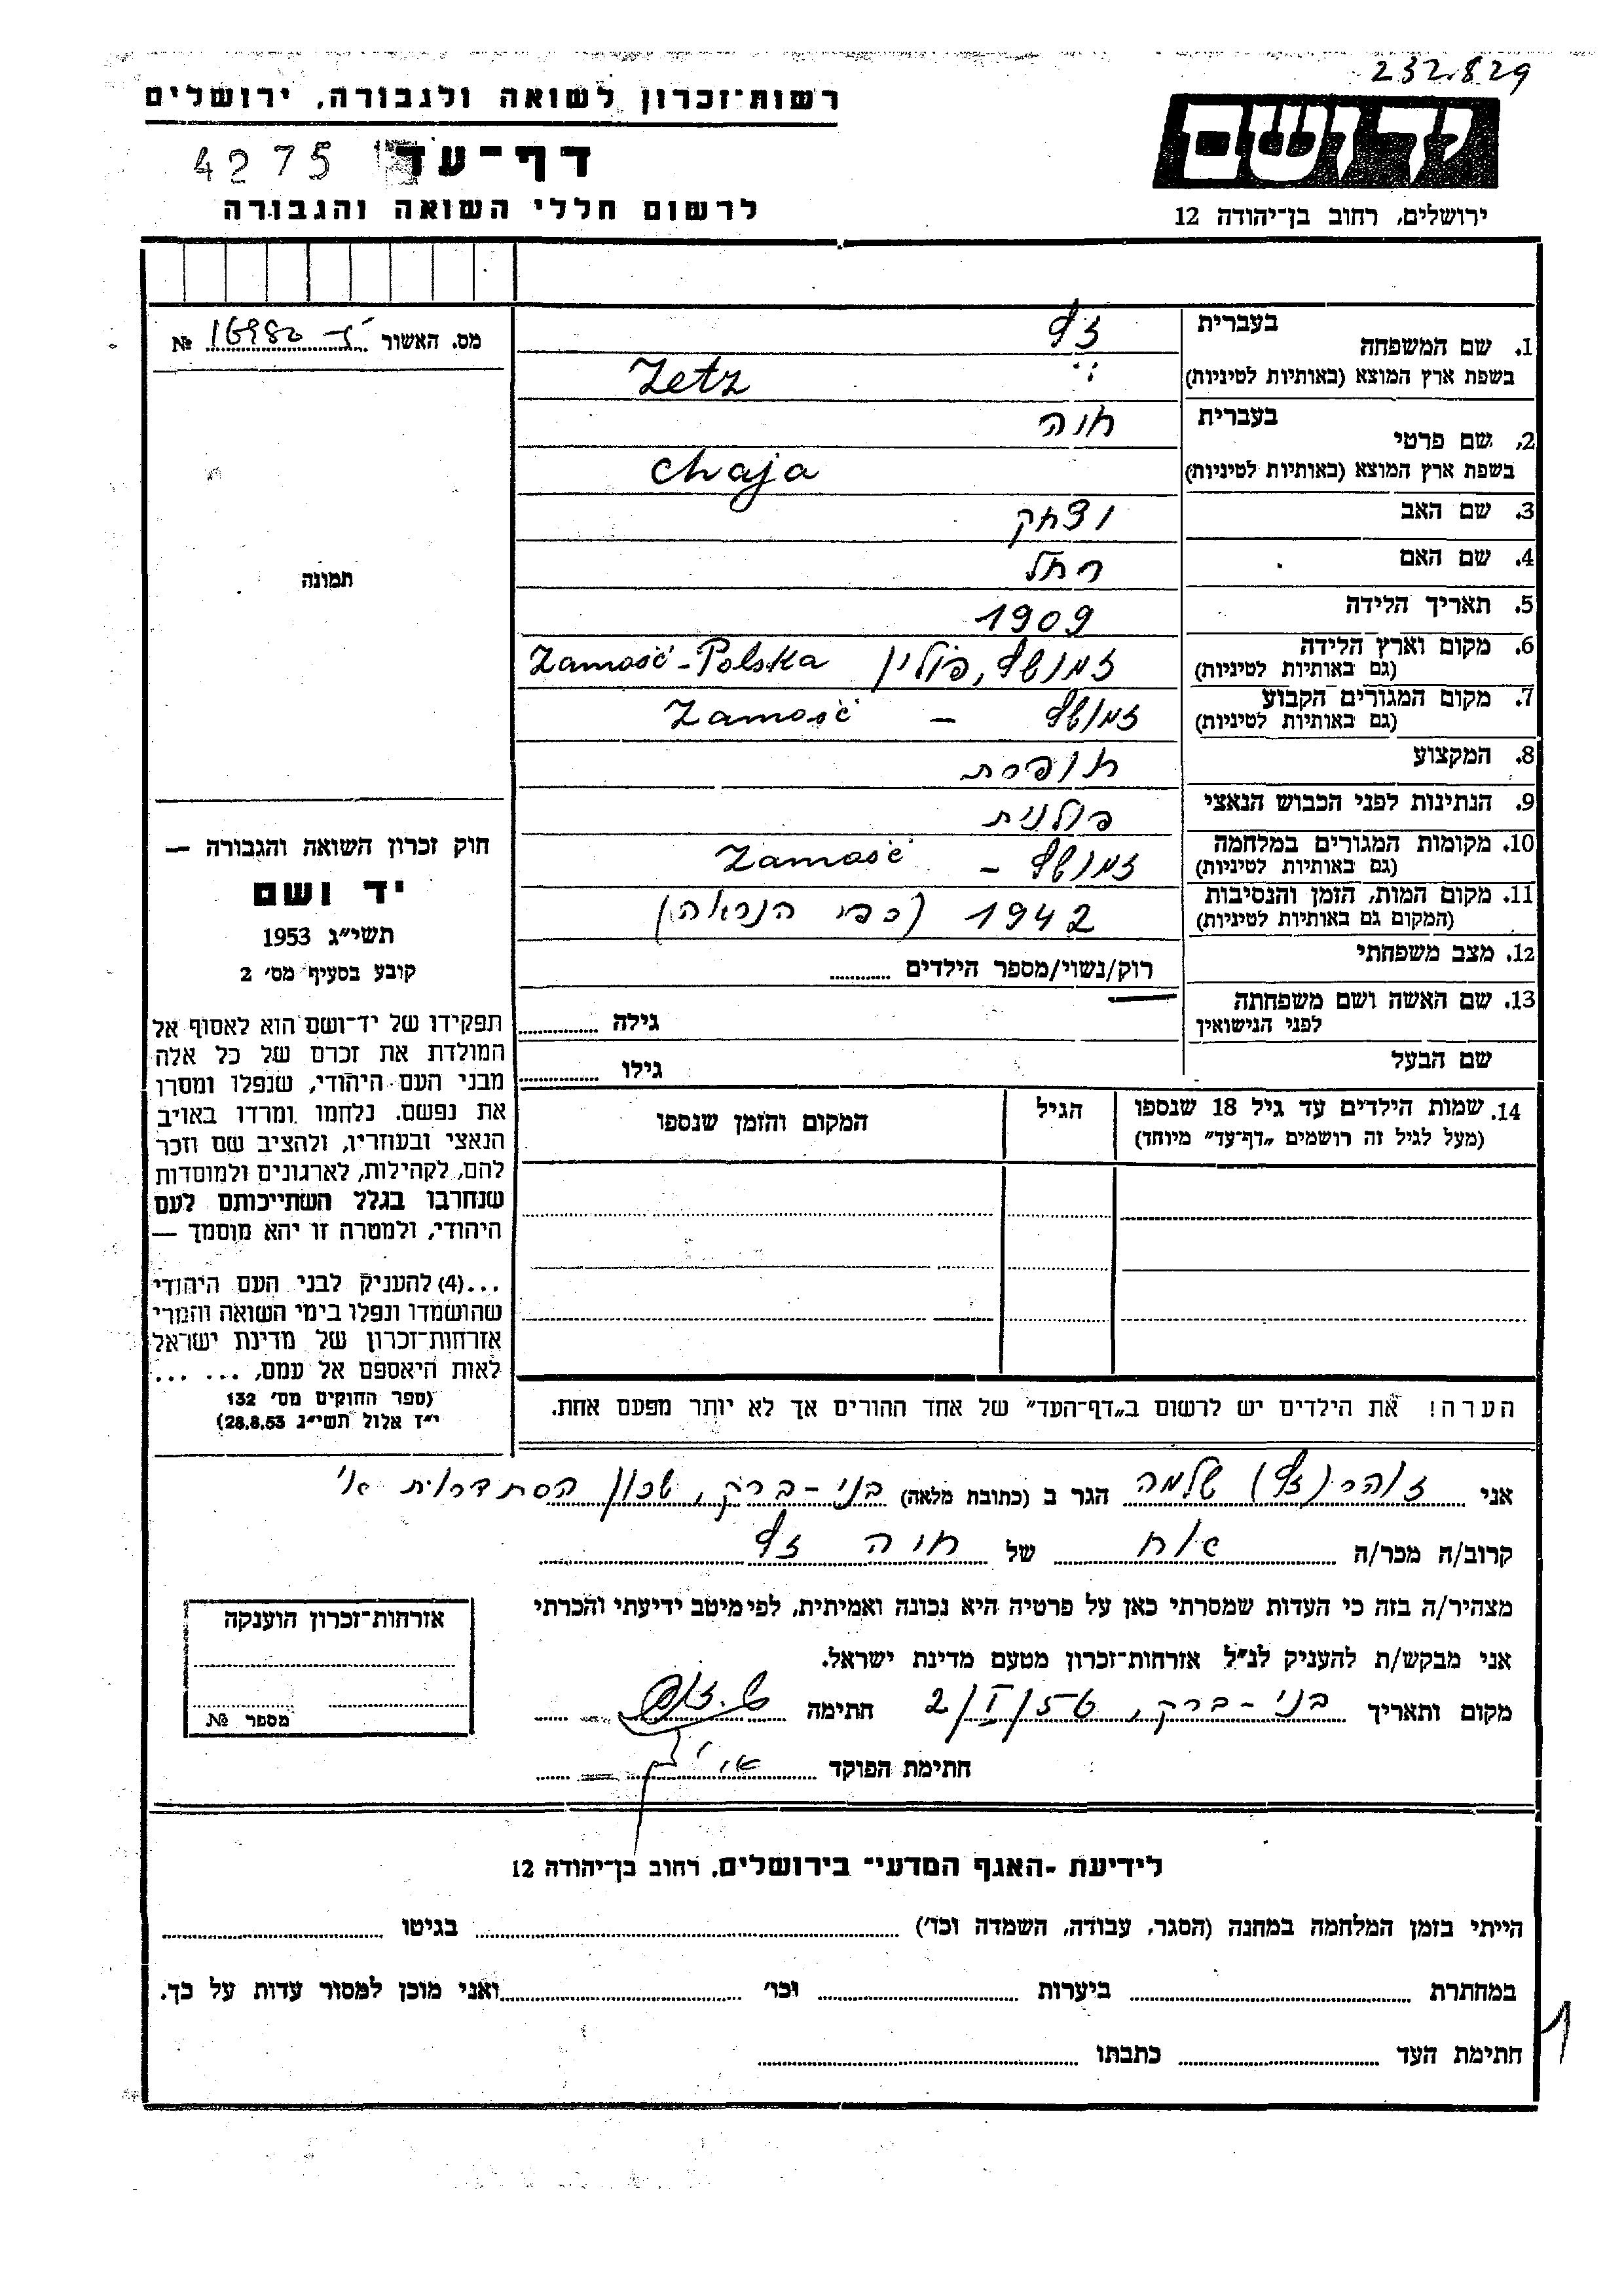 232.829
רשות-זכרון לשואה ולגבורה, ירושלים
דף-עד 4275
לרשום חללי השואה והגבורה
ידושם
ירושלים, רחוב בן-יהודה 12
מס. האשור 16980 №
תמונה
1. שם המשפחה בעברית זץ
בשפת ארץ המוצא (באותיות לטיניות) Zetz
2. שם פרטי בעברית חיה
בשפת ארץ המוצא (באותיות לטיניות) Chaja
3. שם האב יצחק
4. שם האם רחל
5. תאריך הלידה 1909
6. מקום וארץ הלידה (גם באותיות לטיניות) זמושץ, פולין Zamość-Polska
7. מקום המגורים הקבוע (גם באותיות לטיניות) זמושץ - Zamość
8. המקצוע תופרת
9. הנתינות לפני הכבוש הנאצי פולנית
10. מקומות המגורים במלחמה (גם באותיות לטיניות) זמושץ - Zamość
11. מקום המות, הזמן והנסיבות (המקום גם באותיות לטיניות) 1942 (כפי הנראה)
12. מצב משפחתי רוק/נשוי/מספר הילדים
13. שם האשה ושם משפחתה לפני הנישואין גילה
שם הבעל גילו
14. שמות הילדים עד גיל 18 שנספו הגיל המקום והזמן שנספו
(מעל לגיל זה רושמים „דף-עד" מיוחד)
חוק זכרון השואה והגבורה —
יד ושם
תשי"ג 1953
קובע בסעיף מס' 2
תפקידו של יד-ושם הוא לאסוף אל
המולדת את זכרם של כל אלה
מבני העם היהודי, שנפלו ומסרו
את נפשם. נלחמו ומרדו באויב
הנאצי ובעוזריו, ולהציב שם וזכר
להם, לקהילות, לארגונים ולמוסדות
שנחרבו בגלל השתייכותם לעם
היהודי, ולמטרה זו יהא מוסמך —
...(4) להעניק לבני העם היהודי
שהושמדו ונפלו בימי השואה והמרי
אזרחות-זכרון של מדינת ישראל
לאות היאספם אל עמם, ... ...
(ספר החוקים מס' 132
י"ז אלול תשי"ג 28.8.53)
הערה! את הילדים יש לרשום ב„דף-העד" של אחד ההורים אך לא יותר מפעם אחת.
אני זוהר (זץ) שלמה הגר ב (כתובת מלאה) בני-ברק, שכון הסתדרות א'
קרוב/ה מכר/ה אח של חיה זץ
מצהיר/ה בזה כי העדות שמסרתי כאן על פרטיה היא נכונה ואמיתית, לפי מיטב ידיעתי והכרתי
אני מבקש/ת להעניק לנ"ל אזרחות-זכרון מטעם מדינת ישראל.
מקום ותאריך בני-ברק, 2/I/56 חתימה
חתימת הפוקד
אזרחות-זכרון הוענקה
מספר №
לידיעת -האגף המדעי- בירושלים, רחוב בן-יהודה 12
הייתי בזמן המלחמה במחנה (הסגר, עבודה, השמדה וכו') בגיטו
במחתרת ביערות וכו' ואני מוכן למסור עדות על כך.
חתימת העד כתבתו
1